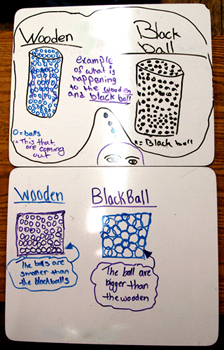 Wooden
Black ball
example of what is happening to the wooden and black ball
O = balls
= This that are coming out
= Black ball
Wooden
BlackBall
The balls are smaller than the blackballs
The ball are bigger than the wooden